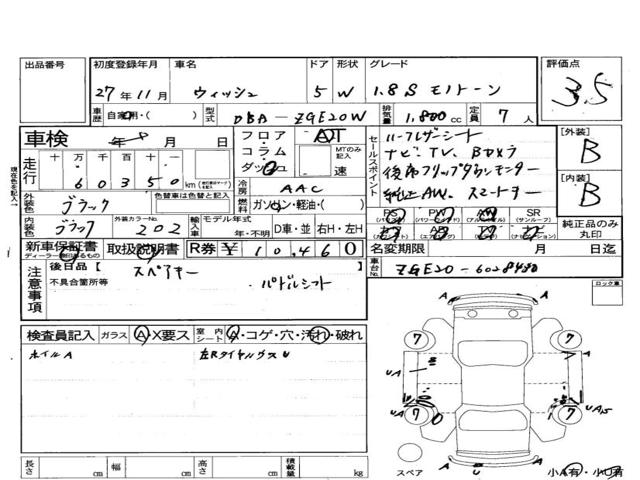 出品番号 初度登録年月 車名 ドア 形状 グレード 評価点
27年11月 ウィッシュ 5 W 1.8S モノトーン 3.5
車歴 自家用・( ) 型式 DBA-ZGE20W 排気量 1,800cc 定員 7人
車検 年 月 日
フロア コラム ダッシュ AT MTのみ記入 速
セールスポイント
ハーフレザーシート
ナビ、TV、Bカメラ
後席フリップダウンモニター
純正AW、スマートキー
[外装] B
[内装] B
現在色を記入→
走行 十万 万 千 百 十 一
60350 km
冷房 AAC
燃料 ガソリン・軽油・( )
外装色 ブラック 色替車は色替と記入
内装色 ブラック 外装カラーNo. 202
輸入車 モデル年式 年・不明 D車・並 右H・左H
PS PW SR
(パワステ) (サンルーフ)
純正品のみ丸印
新車保証書 取扱説明書 R券 ¥10,460
名変期限 月 日迄
車台No. ZGE20-6028480
注意事項
後日品【 スペアキー
不具合箇所等 パドルシフト
ロック車
検査員記入 ガラス A・X要ス 室内シート ・コゲ・穴・汚れ・破れ
ホイルA
7 7
A A
UA
UA 7 7 UA,S
A U A
スペア
小A有・小U有
長さ cm 幅 cm 高さ cm 積載量 kg